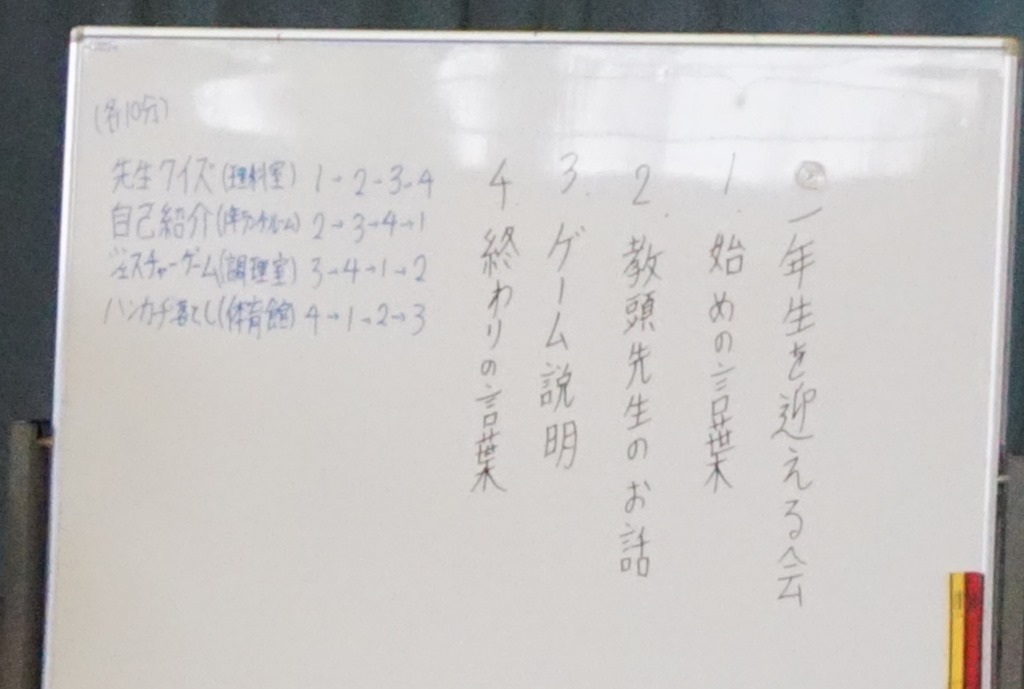 一年生を迎える会
1. 始めの言葉
2. 教頭先生のお話
3. ゲーム説明
4. 終わりの言葉
(各10分)
先生クイズ(理科室) 1→2→3→4
自己紹介(ランチルーム) 2→3→4→1
ジェスチャーゲーム(調理室) 3→4→1→2
ハンカチ落とし(体育館) 4→1→2→3